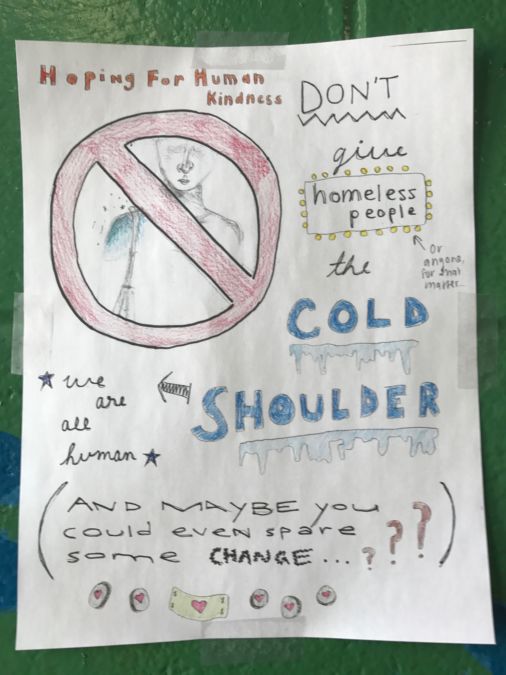 Hoping For Human
Kindness
DON'T
give
homeless
people
Or
anyone,
for that
matter...
the
COLD
SHOULDER
we
are
all
human
(AND MAYBE you
could even spare
some CHANGE...???)